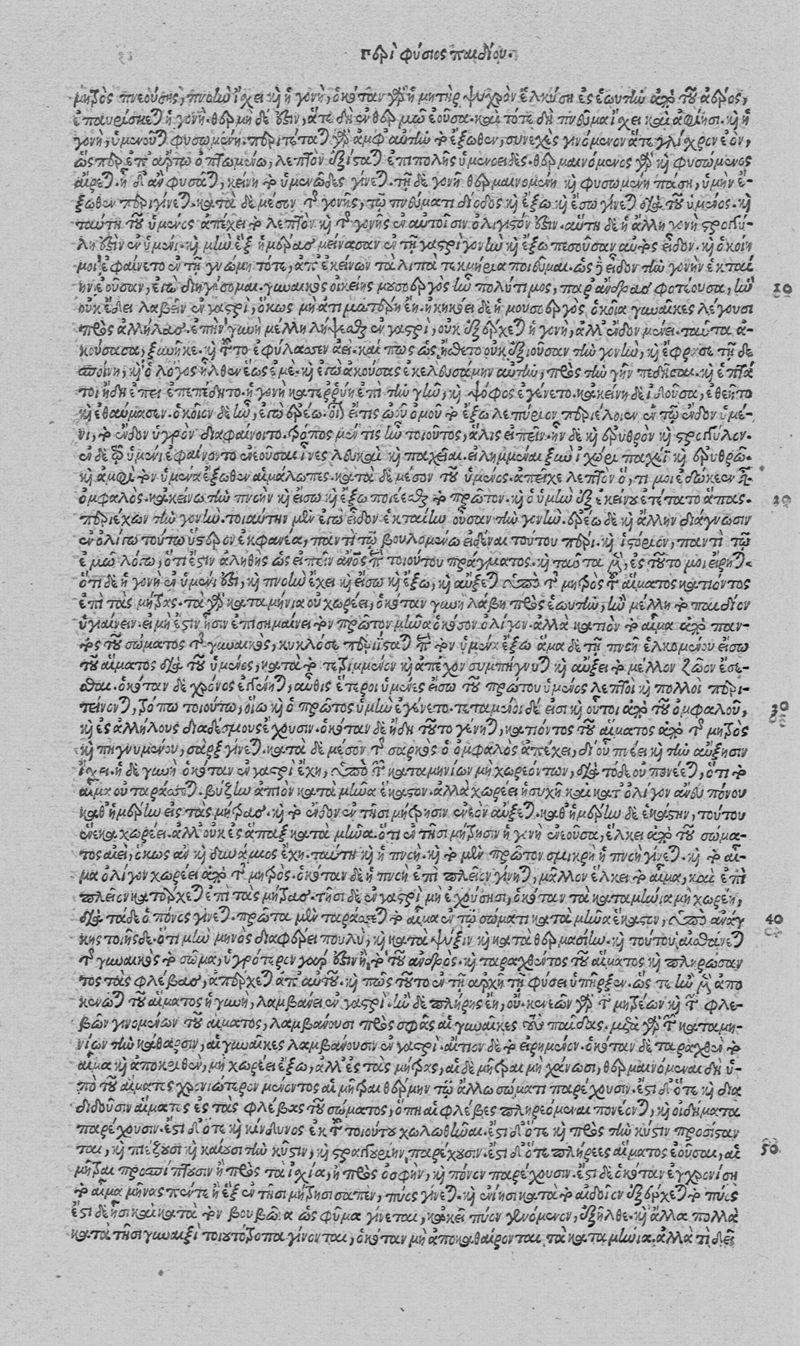 περὶ φύσιος παιδίου.
μητρὸς πνεούσης, πνοὴν ἴχει καὶ ἡ γονὴ, ὁκόταν γὰρ ἡ μητὴρ ψυχρὸν ἑλκύσῃ ἐς ἑωυτὴν ἀπὸ τοῦ ἀέρος,
ἐπαυρίσκεται ἡ γονὴ. θερμὴ δέ ἐστιν, ἅτε δὴ ἐν θερμῷ ἐοῦσα. καὶ τότε δὴ πνεῦμα ἴχει καὶ ἀφίησι. καὶ ἡ
γονὴ, ὑμενοῦται φυσωμένη. περιτέταται γὰρ ἀμφ' αὐτὴν τὸ ἔξωθεν, συνεχὲς γινόμενον ἅτε γλίχρον ἐὸν,
ὥσπερ ἐπ' ἄρτῳ ὀπτωμένῳ, λεπτὸν ἐξίσταται ἐπιπολῆς ὑμενοειδές. θερμαινόμενος γὰρ καὶ φυσώμενος
αἴρεται. ᾗ δ' ἂν φυσᾶται, κείνῃ τὸ ὑμενῶδες γίνεται. τῇ δὲ γονῇ θερμαινομένῃ καὶ φυσωμένῃ πάσῃ, ὑμὴν ἔ-
ξωθεν περιγίνεται. κατὰ δὲ μέσον τῆς γονῆς, τῷ πνεύματι δίοδος καὶ ἔξω καὶ ἔσω γίνεται διὰ τοῦ ὑμένος. καὶ
ταύτῃ τοῦ ὑμένος ἀπέχει τὸ λεπτὸν καὶ τῆς γονῆς ἐν αὐτοῖσιν ὀλίγιστόν ἐστιν. αὕτη δὲ ἡ ἄλλη γονὴ στρογγύ-
λη ἐστὶν ἐν ὑμένι. καὶ μὴν ἓξ ἡμέρας μείνασαν ἐν τῇ γαστρὶ γονὴν καὶ ἔξω πεσοῦσαν αὐτὸς εἶδον. καὶ ὁκοίη
μοι ἐφαίνετο ἐν τῇ γνώμῃ τότε, ἀπ' ἐκείνων τὰ λοιπὰ τεκμήρια ποιεῦμαι. ὡς δὲ εἶδον τὴν γονὴν ἑκταί
ην ἐοῦσαν, ἐγὼ διηγήσομαι. γυναικὸς οἰκείης μουσοεργὸς ἦν πολύτιμος, παρ' ἄνδρας φοιτέουσα, ἣν
οὐκ ἔδει λαβεῖν ἐν γαστρὶ, ὅκως μὴ ἀτιμωτέρη ἔῃ. ἠκηκόει δὲ ἡ μουσοεργὸς, ὁκοῖα γυναῖκες λέγουσι
πρὸς ἀλλήλας. ἐπὴν γυνὴ μέλλῃ λήψεσθαι ἐν γαστρὶ, οὐκ ἐξέρχεται ἡ γονὴ, ἀλλ' ἔνδον μένει. ταῦτα ἀ-
κούσασα, ξυνῆκε. καὶ τοῦτο ἐφύλασσεν ἀεί. καί πως ὡς ᾔσθετο οὐκ ἐξιοῦσαν τὴν γονὴν, καὶ ἔφρασε τῇ δε
σποίνῃ, καὶ ὁ λόγος ἦλθεν ὡς ἐμέ. καὶ ἐγὼ ἀκούσας ἐκελευσάμην αὐτὴν, πρὸς τὴν γῆν πηδῆσαι. καὶ ἑπτά
τοι ἤδη ἔπει ἐπεπήδητο. ἡ γονὴ κατερρύη ἐπὶ τὴν γῆν, καὶ ψόφος ἐγένετο. κἀκείνη δὲ ἰδοῦσα, ἐθεῆτο
καὶ ἐθαύμασεν. ὁκοῖον δὲ ἦν, ἐγὼ ἐρέω. οἷον εἴ τις ὠοῦ ὠμοῦ τὸ ἔξω λεπύριον περιέλοιεν ἐν τῷ ἔνδον ὑμέ-
νι, τὸ ἔνδον ὑγρὸν διαφαίνοιτο. τρόπος μέν τις ἦν τοιοῦτος, ἅλις εἰπεῖν. ἦν δὲ καὶ ἐρυθρὸν καὶ στρογγύλον.
ἐν δὲ τῷ ὑμένι ἐφαίνοντο ἐνεοῦσαι ἶνες λευκαὶ καὶ παχεῖαι. εἰλημμέναι ξὺν ἰχῶρι παχεῖ καὶ ἐρυθρῷ.
καὶ ἀμφὶ τὸν ὑμένα ἔξωθεν αἱμάλωπες. κατὰ δὲ μέσον τοῦ ὑμένος ἀπεῖχε λεπτὸν ὅ, τι μοι ἐδόκεεν εἶναι
ὀμφαλός. κἀκείνῳ τὴν πνοὴν καὶ εἴσω καὶ ἔξω ποιέεσθαι τὸ πρῶτον. καὶ ὁ ὑμὴν ἐξ ἐκείνου ἐτέτατο ἅπας.
περιέχων τὴν γονήν. τοιαύτην μὲν ἐγὼ εἶδον ἑκταίην οὖσαν τὴν γονήν. ἐρέω δὲ καὶ ἄλλην διάγνωσιν
ἐν ὀλίγῳ τούτῳ ὕστερον ἐκφανέα, παντὶ τῷ βουλομένῳ εἰδέναι τούτου πέρι. καὶ ἱστόριον, παντὶ τῷ
ἐμῷ λόγῳ, ὅτι ἐστὶν ἀληθὴς ὡς εἰπεῖν ἄνθρωπον περὶ τοιούτου πράγματος. καὶ ταῦτα μὲν, ἐς τοῦτό μοι εἴρηται.
ὅτι δὲ ἡ γονὴ ἐν ὑμένι ἐστὶ, καὶ πνοὴν ἔχει καὶ εἴσω καὶ ἔξω, καὶ αὔξεται ὑπὸ τῆς μητρὸς τοῦ αἵματος κατιόντος
ἐπὶ τὰς μήτρας. τὰ γὰρ καταμήνια οὐ χωρέει, ὁκόταν γυνὴ λάβῃ πρὸς ἑωυτὴν, ἢν μέλλῃ τὸ παιδίον
ὑγιαίνειν. εἰ μὴ ἔστιν ᾗσιν ἐπισημαίνει τὸν πρῶτον μῆνα ὁκόσον ὀλίγον. ἀλλὰ κατιὸν τὸ αἷμα ἀπὸ παν-
τὸς τοῦ σώματος τῆς γυναικὸς, κυκλόσε περιίσταται περὶ τὸν ὑμένα ἔξω ἅμα δὲ τῇ πνοῇ ἑλκομένου εἴσω
τοῦ αἵματος διὰ τοῦ ὑμένος, κατὰ τὸ τετρημμένον καὶ ἀπέχον συμπήγνυται καὶ αὔξει τὸ μέλλον ζῶον ἔσε-
σθαι. ὁκόταν δὲ χρόνος ἐγγένηται, αὖθις ἕτεροι ὑμένες εἴσω τοῦ πρώτου ὑμένος λεπτοὶ καὶ πολλοὶ περι-
τείνονται, τρόπῳ τοιούτῳ, οἵῳ καὶ ὁ πρῶτος ὑμὴν ἐγένετο. τεταμένοι δέ εἰσι καὶ οὗτοι ἀπὸ τοῦ ὀμφαλοῦ,
καὶ ἐς ἀλλήλους διαδέσμους ἔχουσιν. ὁκόταν δὲ ἤδη τοῦτο γένηται, κατιόντος τοῦ αἵματος ἀπὸ τῆς μητρὸς
καὶ πηγνυμένου, σὰρξ γίνεται. κατὰ δὲ μέσον τῆς σαρκὸς ὁ ὀμφαλὸς ἀπέχει, δι' οὗ πνέει καὶ τὴν αὔξησιν
ἴχει. ἡ δὲ γυνὴ ὁκόταν ἐν γαστρὶ ἔχῃ, ὑπὸ τῶν καταμηνίων μὴ χωρεόντων, διὰ τόδε οὐ πονέεται, ὅτι τὸ
αἷμα οὐ ταράσσεται. βύζην ἀπιὸν κατὰ μῆνα ἕκαστον. ἀλλὰ χωρέει ἡσυχῇ καὶ κατ' ὀλίγον ἄνευ πόνου
καθ' ἡμέρην εἰς τὰς μήτρας. καὶ τὸ ἔνδον ἐν τῇσι μήτρῃσιν ἐνεὸν αὔξεται. καθ' ἡμέρην δὲ ἑκάστην, τούτου
ἕνεκα χωρέει. ἀλλ' οὐκ ἐς ἅπαξ κατὰ μῆνα. ὅτι ἐν τῇσι μήτρῃσιν ἡ γονὴ ἐνεοῦσα, ἕλκει ἀπὸ τοῦ σώμα-
τος ἀεὶ, ὅκως ἂν καὶ δυνάμιος ἔχῃ. ταύτῃ καὶ ἡ πνοή. καὶ τὸ μὲν πρῶτον σμικρὴ ἡ πνοὴ γίνεται. καὶ τὸ αἷ-
μα ὀλίγον χωρέει ἀπὸ τῆς μητρός. ὁκόταν δὲ ἡ πνοὴ ἐπὶ πλεῖον γίνηται, μᾶλλον ἕλκει τὸ αἷμα, καὶ ἐπὶ
πλεῖον κατέρχεται ἐπὶ τὰς μήτρας. τῇσι δὲ ἐν γαστρὶ μὴ ἐχούσῃσι, ὁκόταν τὰ καταμήνια μὴ χωρέῃ,
διὰ τάδε ὁ πόνος γίνεται. πρῶτα μὲν ταράσσεται τὸ αἷμα ἐν τῷ σώματι κατὰ μῆνα ἕκαστον, ὑπὸ ἀνάγ
κης τοιῆσδε. ὅτι μὴν μηνὸς διαφέρει πουλὺ, καὶ κατὰ ψύξιν καὶ κατὰ θερμασίην. καὶ τούτου, αἰσθάνεται
τῆς γυναικὸς τὸ σῶμα, ὑγρότερον γάρ ἐστιν ἢ τὸ τοῦ ἀνδρός. καὶ ταραχθέντος τοῦ αἵματος καὶ πληρώσαν
τος τὰς φλέβας, ἀπέρχεται ἀπ' αὐτοῦ. καὶ πῶς τοῦτο ἐν τῇ ἀρχῇ τῇ φύσει ὑπῆρξεν. ὥς τε ἢν μὲν ἀπο
κενῶται τοῦ αἵματος ἡ γυνὴ, λαμβάνει ἐν γαστρί. ἢν δὲ πλήρης ἔῃ, οὔ. κενεῶν γὰρ τῶν μητρέων καὶ τῶν φλε-
βῶν γινομένων τοῦ αἵματος, λαμβάνουσι πρὸς σφᾶς αἱ γυναῖκες τοὺς παῖδας. μετὰ γὰρ τῶν καταμη-
νίων τὴν κάθαρσιν, αἱ γυναῖκες λαμβάνουσιν ἐν γαστρί. αἴτιον δὲ τὸ εἰρημένον. ὁκόταν δὲ ταραχθὲν τὸ
αἷμα καὶ ἀποκριθὲν, μὴ χωρέει ἔξω, ἀλλ' ἐς τὰς μήτρας, αἱ δὲ μῆτραι μὴ χάνωσι, θερμαινόμεναι δὴ ὑ-
πὸ τοῦ αἵματος χρονιώτερον μένοντος αἱ μῆτραι θέρμην τῷ ἄλλῳ σώματι παρέχουσιν. ἔστι δ' ὅτε καὶ δια
διδοῦσιν αἵματος ἐς τὰς φλέβας τοῦ σώματος, ὅπη αἱ φλέβες πληρεόμεναι πονέονται, καὶ οἰδήματα
παρέχουσιν. ἔστι δ' ὅτε καὶ κίνδυνος ἐκ τοῦ τοιούτου χωλωθῆναι. ἔστι δ' ὅτε καὶ πρὸς τὴν κύστιν προσίσταν
ται, καὶ πιέζουσι καὶ κλείουσι τὴν κύστιν, καὶ στραγγουρίην παρέχουσιν. ἔστι δ' ὅτε πλήρεες αἵματος ἐοῦσαι, αἱ
μῆτραι προσπίπτουσιν ἢ πρὸς τὰ ἰσχία, ἢ πρὸς ὀσφὺν, καὶ πόνον παρέχουσιν. ἔστι δ' ὁκόταν ἐγχρονίσῃ
τὸ αἷμα μῆνας πέντε ἢ ἓξ ἐν τῇσι μήτρῃσι σαπὲν, πύος γίνεται. καὶ ἐνίῃσι κατὰ τὸ αἰδοῖον ἐξέρχεται τὸ πύος
ἔστι δὲ ᾗσι καὶ κατὰ τὸν βουβῶνα ὡς φῦμα γίνεται, κἀκεῖ πύον γενόμενον, ἐξῆλθε. καὶ ἄλλα πολλὰ
κατὰ τῇσι γυναιξὶ τοιουτότροπα γίνονται, ὁκόταν μὴ ἀποκαθαίρονται τὰ καταμήνια. ἀλλὰ τί δεῖ
10
20
30
40
50